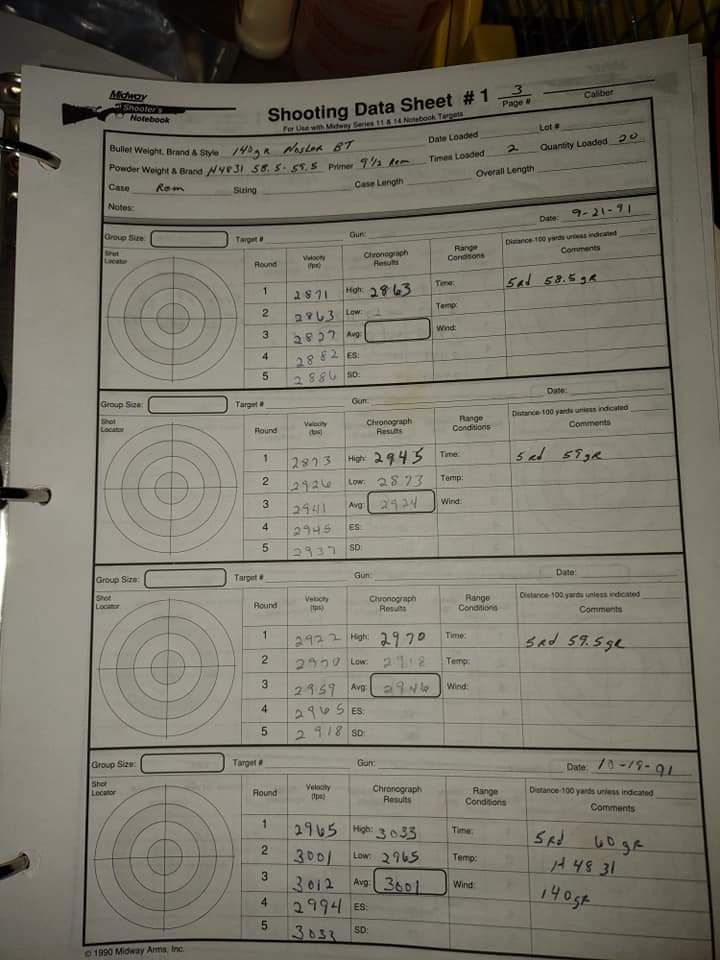 Midway
Shooter's
Notebook
Shooting Data Sheet # 1
3
Page #
Caliber
For Use with Midway Series 11 & 14 Notebook Targets
Bullet Weight, Brand & Style 140gr Nosler BT Date Loaded Lot #
Powder Weight & Brand H4831 58.5-59.5 Primer 9½ Rem Times Loaded 2 Quantity Loaded 20
Case Rem Sizing Case Length Overall Length
Notes:
Group Size: Target # Gun: Date: 9-21-91
Shot Locator Round Velocity (fps) Chronograph Results Range Conditions Distance-100 yards unless indicated Comments
1 2871 High: 2863 Time: 5rd 58.5gr
2 2863 Low: Temp:
3 2827 Avg: Wind:
4 2882 ES:
5 2886 SD:
Group Size: Target # Gun: Date:
Shot Locator Round Velocity (fps) Chronograph Results Range Conditions Distance-100 yards unless indicated Comments
1 2873 High: 2945 Time: 5rd 59gr
2 2926 Low: 2873 Temp:
3 2941 Avg: 2924 Wind:
4 2945 ES:
5 2937 SD:
Group Size: Target # Gun: Date:
Shot Locator Round Velocity (fps) Chronograph Results Range Conditions Distance-100 yards unless indicated Comments
1 2922 High: 2970 Time: 5rd 59.5gr
2 2970 Low: 2918 Temp:
3 2959 Avg: 2946 Wind:
4 2965 ES:
5 2918 SD:
Group Size: Target # Gun: Date: 10-19-91
Shot Locator Round Velocity (fps) Chronograph Results Range Conditions Distance-100 yards unless indicated Comments
1 2965 High: 3033 Time: 5rd 60gr
2 3001 Low: 2965 Temp: H4831
3 3012 Avg: 3001 Wind: 140gr
4 2994 ES:
5 3033 SD:
© 1990 Midway Arms, Inc.